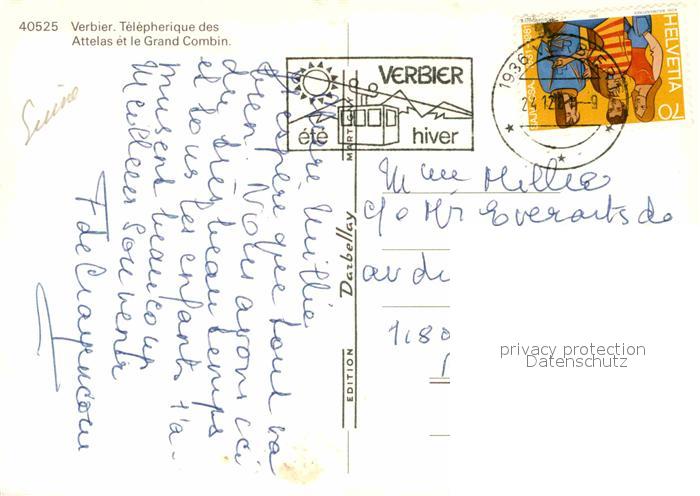 40525 Verbier. Télépherique des
Attelas et le Grand Combin.
Suisse
Chère Millie
J'espère que tout va
bien. Nous avons ici
du très beau temps
et tous les enfants s'a-
musent beaucoup
Meilleurs souvenirs
F de
EDITION Darbellay MARTIGNY
VERBIER
été hiver
1936 VERBIER
HELVETIA
70
Mme Millie
c/o Mr Everarts de
av de
1180
privacy protection
Datenschutz